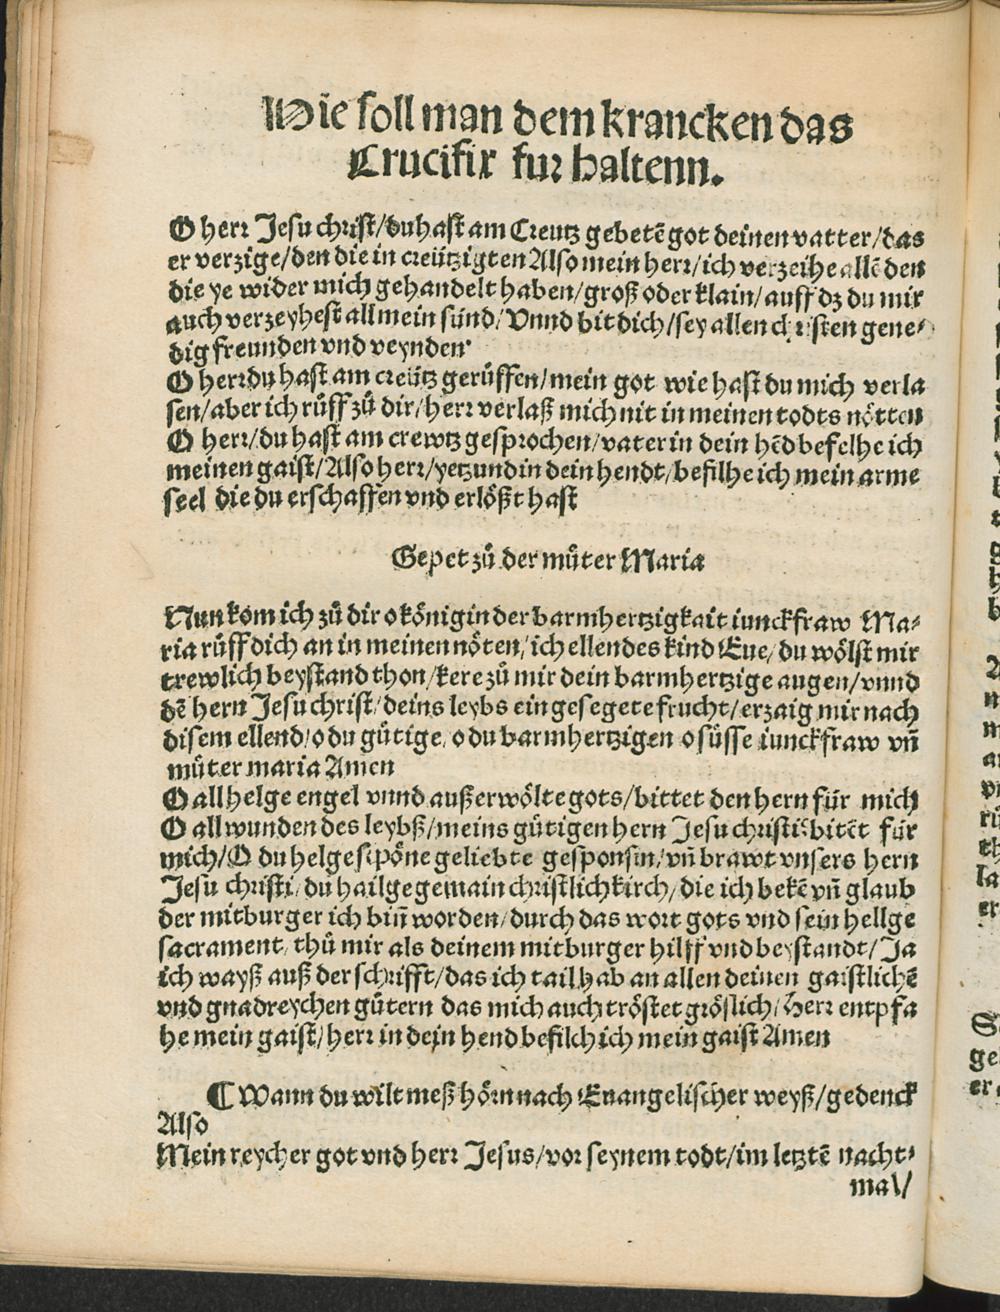 Wie soll man dem krancken das
Crucifix fur haltenn.
O herr Jesu christ/du hast am Creutz gebetē got deinen vatter/das
er verzige/den die in creützigten Also mein herr/ich verzeihe allē den
die ye wider mich gehandelt haben/groß oder klain/auff dz du mir
auch verzeyhest all mein sünd/Vnnd bit dich/sey allen christen gene-
dig freunden vnd veynden
O herr du hast am creütz gerüffen/mein got wie hast du mich verla
sen/aber ich rüff zů dir/herr verlaß mich nit in meinen todts nötten
O herr/du hast am crewtz gesprochen/vater in dein hēd befelhe ich
meinen gaist/Also herr/yetzund in dein hendt/befilhe ich mein arme
seel die du erschaffen vnd erlößt hast
Gepet zů der můter Maria
Nun kom ich zů dir o königin der barmhertzigkait iunckfraw Ma-
ria rüff dich an in meinen nöten/ich ellendes kind Eue/du wölst mir
trewlich beystand thon/kere zů mir dein barmhertzige augen/vnnd
dē hern Jesu christ/deins leybs ein gesegete frucht/erzaig mir nach
disem ellend/o du gütige/o du barmhertzigen o süsse iunckfraw vñ
můter maria Amen
O all helge engel vnnd außerwölte gots/bittet den hern für mich
O all wunden des leybß/meins gütigen hern Jesu christi bitēt für
mich/O du helge schöne geliebte gesponsin/vñ brawt vnsers hern
Jesu christi/du hailge gemain christlich kirch/die ich bekē vñ glaub
der mitburger ich biñ worden/durch das wort gots vnd sein hellge
sacrament/thů mir als deinem mitburger hilff vnd beystandt/Ja
ich wayß auß der schrifft/das ich tail hab an allen deinen gaistlichē
vnd gnadreychen gütern das mich auch tröstet gröslich/Herr entpfa
he mein gaist/herr in dein hend befilch ich mein gaist Amen
¶ Wann du wilt meß hörn nach Euangelischer weyß/gedenck
Also
Mein reycher got vnd herr Jesus/vor seynem todt/im letztē nacht-
mal/